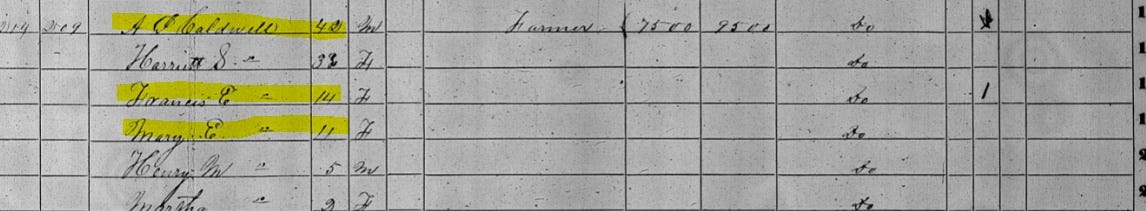 209 209 A E Caldwell 42 M Farmer 7500 9500 Do
Harriett S " 33 F Do
Francis E " 14 F Do 1
Mary E " 11 F Do
Henry M " 5 M Do
Martha " 2 F Do